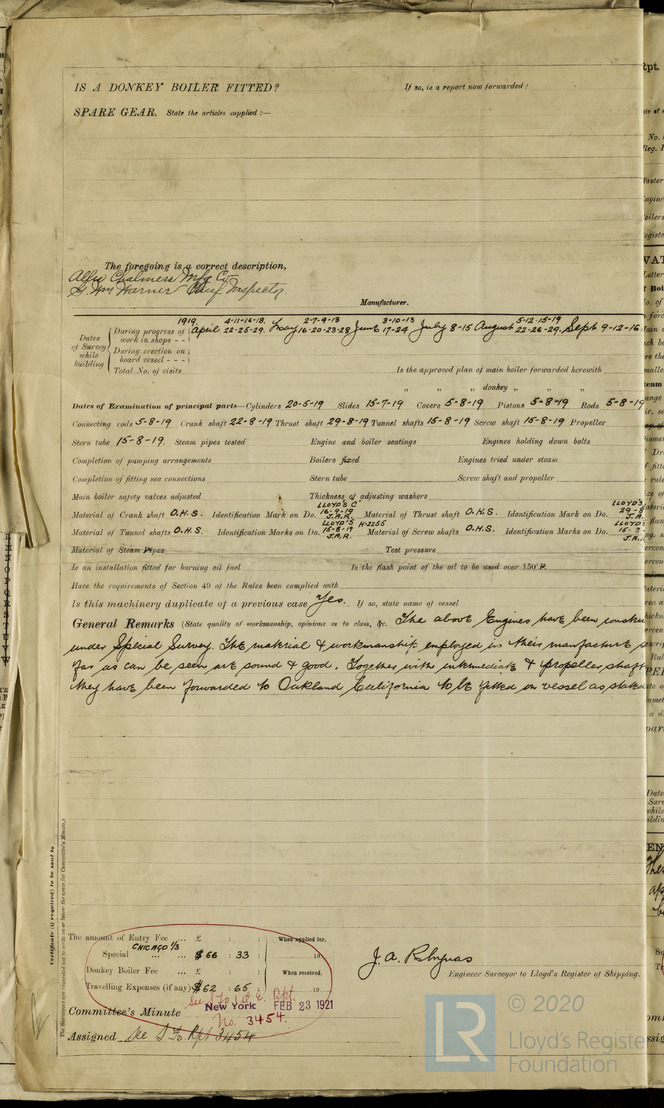 IS A DONKEY BOILER FITTED? If so, is a report now forwarded?
SPARE GEAR. State the articles supplied :—
The foregoing is a correct description,
Allis Chalmers Mfg Co.
G. Wm Warner Chief Inspector. Manufacturer.
Dates of Survey while building
1919. 4-11-16-18. 2-7-9-13 3-10-13 5-12-15-19
During progress of work in shops - - April 22-25-29. May 16-20-23-28 June 17-24 July 8-15 August 22-26-29. Sept 9-12-16
During erection on board vessel - - -
Total No. of visits Is the approved plan of main boiler forwarded herewith
" " " donkey " " "
Dates of Examination of principal parts—Cylinders 20-5-19 Slides 15-7-19 Covers 5-8-19 Pistons 5-8-19 Rods 5-8-19
Connecting rods 5-8-19 Crank shaft 22-8-19 Thrust shaft 29-8-19 Tunnel shafts 15-8-19 Screw shaft 15-8-19 Propeller
Stern tube 15-8-19. Steam pipes tested Engine and boiler seatings Engines holding down bolts
Completion of pumping arrangements Boilers fixed Engines tried under steam
Completion of fitting sea connections Stern tube Screw shaft and propeller
Main boiler safety valves adjusted Thickness of adjusting washers
Material of Crank shaft O.H.S. Identification Mark on Do. LLOYD'S C J.A.R. Material of Thrust shaft O.H.S. Identification Marks on Do. LLOYD'S 29-8 J.A.
Material of Tunnel shafts O.H.S. Identification Marks on Do. LLOYD'S H3255 15-8-19 J.A.R. Material of Screw shafts O.H.S. Identification Marks on Do. LLOYD'S J.A.
Material of Steam Pipes Test pressure
Is an installation fitted for burning oil fuel Is the flash point of the oil to be used over 150°F.
Have the requirements of Section 49 of the Rules been complied with
Is this machinery duplicate of a previous case Yes. If so, state name of vessel
General Remarks (State quality of workmanship, opinions as to class, &c. The above Engines have been
under Special Survey. The material & workmanship employed in their manufacture
far as can be seen are sound & good. Together with intermediate & propeller shaft
they have been forwarded to Oakland California to be fitted in vessel as stated
Certificate (if required) to be sent to
The Surveyors are requested not to write on or below the space for Committee's Minute.
The amount of Entry Fee ... £ : : When applied for,
CHICAGO 1/3
Special ... ... $ 66 : 33 : 19
Donkey Boiler Fee ... £ : : When received.
Travelling Expenses (if any) $ 62 : 65 : 19
J. A.
Engineer Surveyor to Lloyd's Register of Shipping.
Committee's Minute New York FEB 23 1921
No. 3454.
Assigned See Rpt 3454
LR © 2020
Lloyd's Register
Foundation